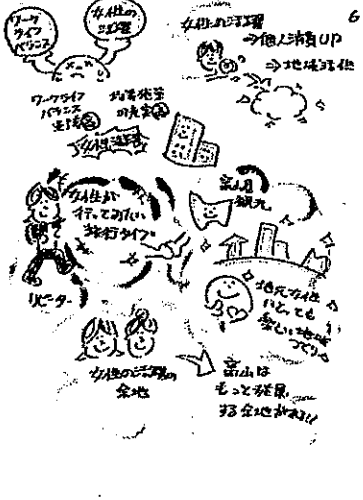 ワーク
ライフ
バランス
女性の
活躍
6
女性の活躍
⇒個人消費UP
⇒地域活性
ワークライフ
バランス
女性活躍
女性が
行ってみたい
旅行タイプ
富山県
観光
リピーター
地元女性
にとっても
楽しい地域
づくり
女性の活躍の
余地
富山は
もっと発展
する余地がある!!